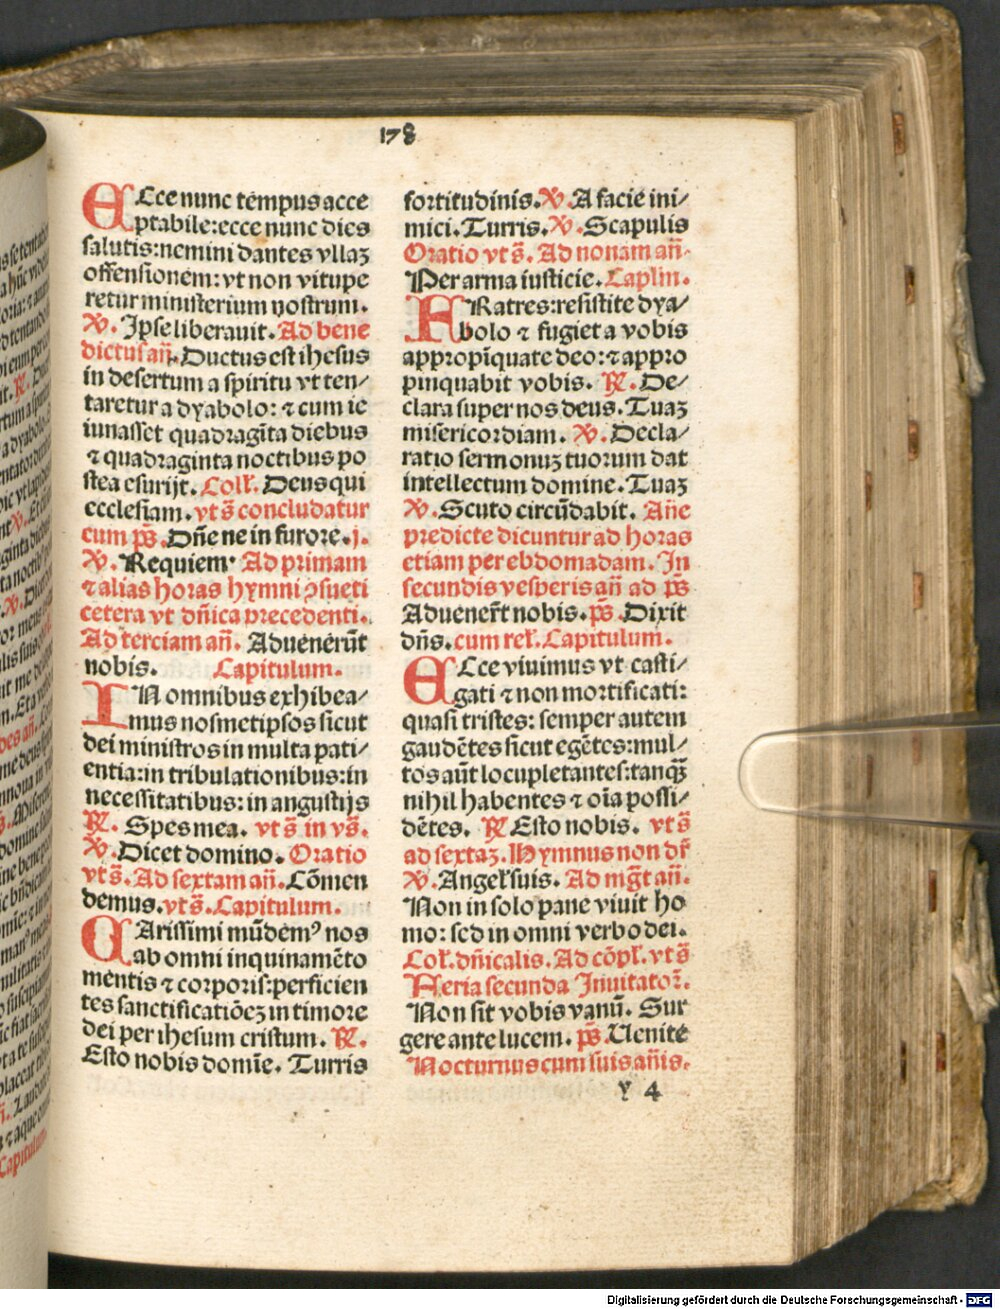 178
ECce nunc tempus acce
ptabile:ecce nunc dies
salutis:nemini dantes vllaꝫ
offensionem:vt non vitupe
retur ministerium nostrum.
℣. Ipse liberauit. Ad bene
dictus añ. Ductus est ihesus
in desertum a spiritu vt ten/
taretur a dyabolo: ⁊ cum ie
iunasset quadragīta diebus
⁊ quadraginta noctibus po
stea esurijt. Coll'. Deus qui
ecclesiam. vt s̄ concludatur
cum p̄s. Dn̄e ne in furore. j.
℣. Requiem. Ad primam
⁊ alias horas hymni ꝯsueti
cetera vt dn̄ica precedenti.
Ad terciam añ. Aduenerūt
nobis. Capitulum.
IN omnibus exhibea/
mus nosmetipsos sicut
dei ministros in multa pati/
entia:in tribulationibus:in
necessitatibus: in angustijs
℟. Spes mea. vt s̄ in vs̄.
℣. Dicet domino. Oratio
vt s̄. Ad sextam añ. Cōmen
demus. vt s̄. Capitulum.
CArissimi mūdemꝰ nos
ab omni inquinamēto
mentis ⁊ corporis:perficien
tes sanctificatiōeꝫ in timore
dei per ihesum cristum. ℟.
Esto nobis domīe. Turris
fortitudinis. ℣. A facie ini/
mici. Turris. ℣. Scapulis
Oratio vt s̄. Ad nonam añ.
Per arma iusticie. Caplm.
FRatres:resistite dya/
bolo ⁊ fugiet a vobis
appropīquate deo:⁊ appro
pinquabit vobis. ℟. De/
clara super nos deus. Tuaꝫ
misericordiam. ℣. Decla/
ratio sermonuꝫ tuorum dat
intellectum domine. Tuaꝫ
℣. Scuto circūdabit. Añe
predicte dicuntur ad horas
etiam per ebdomadam. In
secundis vesperis añ ad p̄s
Aduener̄t nobis. p̄s. Dixit
dn̄s. cum rel'. Capitulum.
ECce viuimus vt casti/
gati ⁊ non mortificati:
quasi tristes: semper autem
gaudētes sicut egētes:mul/
tos aūt locupletantes:tanqꝫ
nihil habentes ⁊ oīa possi/
dētes. ℟ Esto nobis. vt s̄
ad sextaꝫ. Hymnus non dr̄
℣. Angel'suis. Ad mḡt añ.
Non in solo pane viuit ho
mo: sed in omni verbo dei.
Col'. dn̄icalis. Ad cōpl'. vt s̄
Feria secunda Inuitator̄.
Non sit vobis vanū. Sur
gere ante lucem. p̄s. Uenite
Nocturnus cum suis añis.
y 4
Digitalisierung gefördert durch die Deutsche Forschungsgemeinschaft - DFG